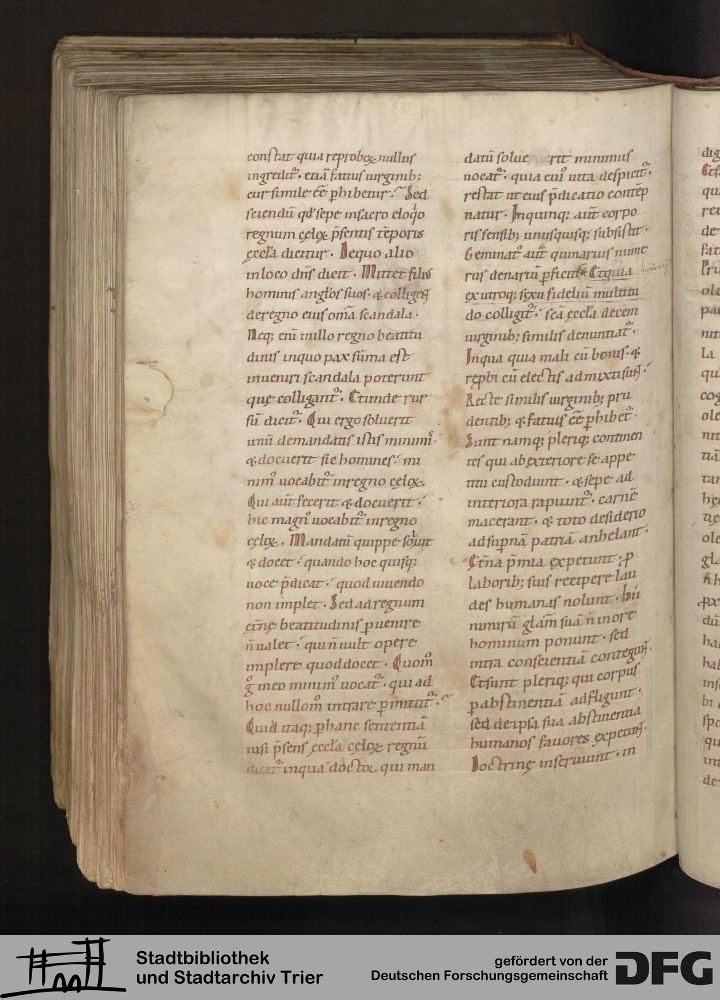 constat quia reproboꝝ nullus
ingredit᷑. etiā fatuis uirginib;
cur simile eē ꝓhibetur? Sed
sciendū qd sepe in sacro eloq̇o
regnum cęloꝝ p̄sentis tēporis
ęccła dicitur. De quo alio
in loco dn̄s dicit. Mittet filiꝰ
hominis angłos suos. & colligen̄t
de regno eius om̄a scandala.
Neq; enī in illo regno beatitu
dinis in quo pax sūma est
inueniri scandala poterunt
que colligant᷑. Et unde rur
sū dicit᷑. Qui ergo soluerit
unū de mandatis istis minimiꝰ
& docuerit sic homines. mi
nimꝰ uocabit᷑ in regno cęloꝝ.
Qui aut̄ fecerit & docuerit.
hic magnꝰ uocabit᷑ in regno
cęloꝝ. Mandatū quippe soluit
& docet. quando hoc quisq;
uoce p̄dicat. quod uiuendo
non implet. Sed ad regnum
etn̄ę beatitudinis ꝑuenire
n̄ ualet. qui n̄ uult opere
implere quod docet. Quomꝰ
g̊ in eo minimꝰ uocat᷑. qui ad
hoc nullomꝰ intrare ꝑmittit᷑.
Quid itaq; ꝑ hanc sententiā
nisi p̄sens ęccła cęloꝝ regnū
dicit᷑ in qua doctor qui man
datū solue rit minimus
uocat᷑. quia cuiꝰ uita despicit᷑.
restat ut eius p̄dicatio contēp
natur. In quinq; aut̄ corpo
ris sensib; unusquisq; subsistit.
Geminatꝰ aut̄ quinarius nume
rus denariū ꝑficit. Et quia
ex utroq; sexu fideliū multitu
do colligit᷑. scā ęccła decem
uirginib; similis denuntiat᷑.
In qua quia mali cū bonis. &
rep̄bi cū electis admixti sun̄t.
Recte similis uirginib; pru
dentib; & fatuis eē ꝑhibet᷑.
Sunt namq; pleriq; continen
tes qui ab exteriore se appe
titu custodiunt. & sepe ad
interiora rapiunt᷑. carnē
macerant. & toto desiderio
ad sup̄nam patriā anhelant.
Etn̄a p̄mia expetunt. ꝓ
laborib; suis recipere lau
des humanas nolunt. Hii
nimirū głam suā n̄ in ore
hominum ponunt. sed
intra conscientiā contegun̄t.
Et sunt pleriq; qui corpus
ꝑ abstinentiā adfligunt.
sed de ipsa sua abstinentia
humanos fauores expetun̄t.
Doctrinę inseruiunt. in
dig
Et s
qua
rec
de
fat
qu
cog
ole
Stadtbibliothek
und Stadtarchiv Trier
gefördert von der
Deutschen Forschungsgemeinschaft
DFG